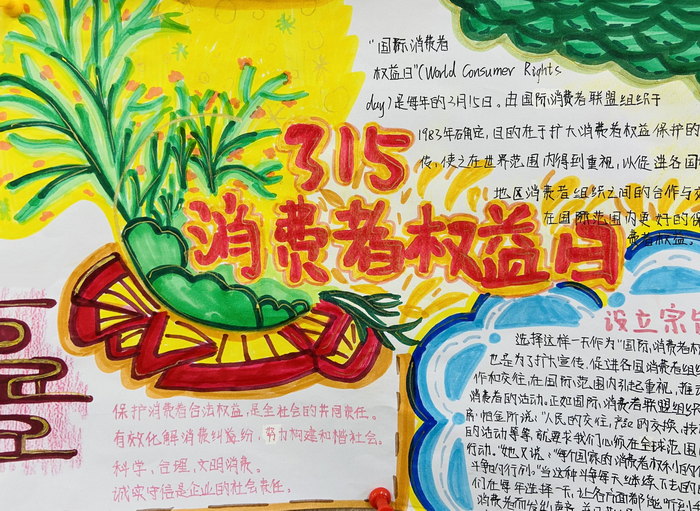 "国际消费者
权益日"(World Consumer Rights
day)是每年的3月15日。由国际消费者联盟组织于
1983年确定,目的在于扩大消费者权益保护的
传,使之在世界范围内得到重视,以促进各国
地区消费者组织之间的合作与交
在国际范围内更好的保
费者权益。
315
消费者权益日
设立宗旨
选择这样一天作为"国际消费者权
也是为了扩大宣传,促进各国消费者组织
作和交往,在国际范围内引起重视,推动
消费者的活动。正如国际消费者联盟组织
席·帕金所说:"人民的交往,产品的交换,技
的活动等等,就要求我们必须在全球范围
行动。"她又说:"每个国家的消费者权利的
斗争的行列。"当这种斗争每天继续下去的
们在每年选择一天,让各方面都能听到
消费者
保护消费者合法权益,是全社会的共同责任。
有效化解消费纠纷,努力构建和谐社会。
科学、合理、文明消费。
诚实守信是企业的社会责任。